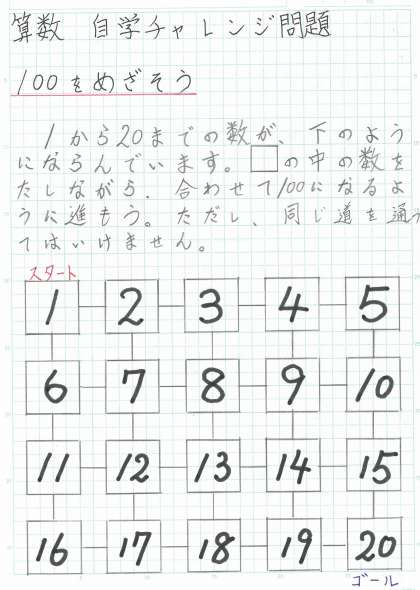 算数 自学チャレンジ問題
100をめざそう
1から20までの数が、下のよう
にならんでいます。□の中の数を
たしながら、合わせて100になるよ
うに進もう。ただし、同じ道を通っ
てはいけません。
スタート
1 2 3 4 5
6 7 8 9 10
11 12 13 14 15
16 17 18 19 20
ゴール